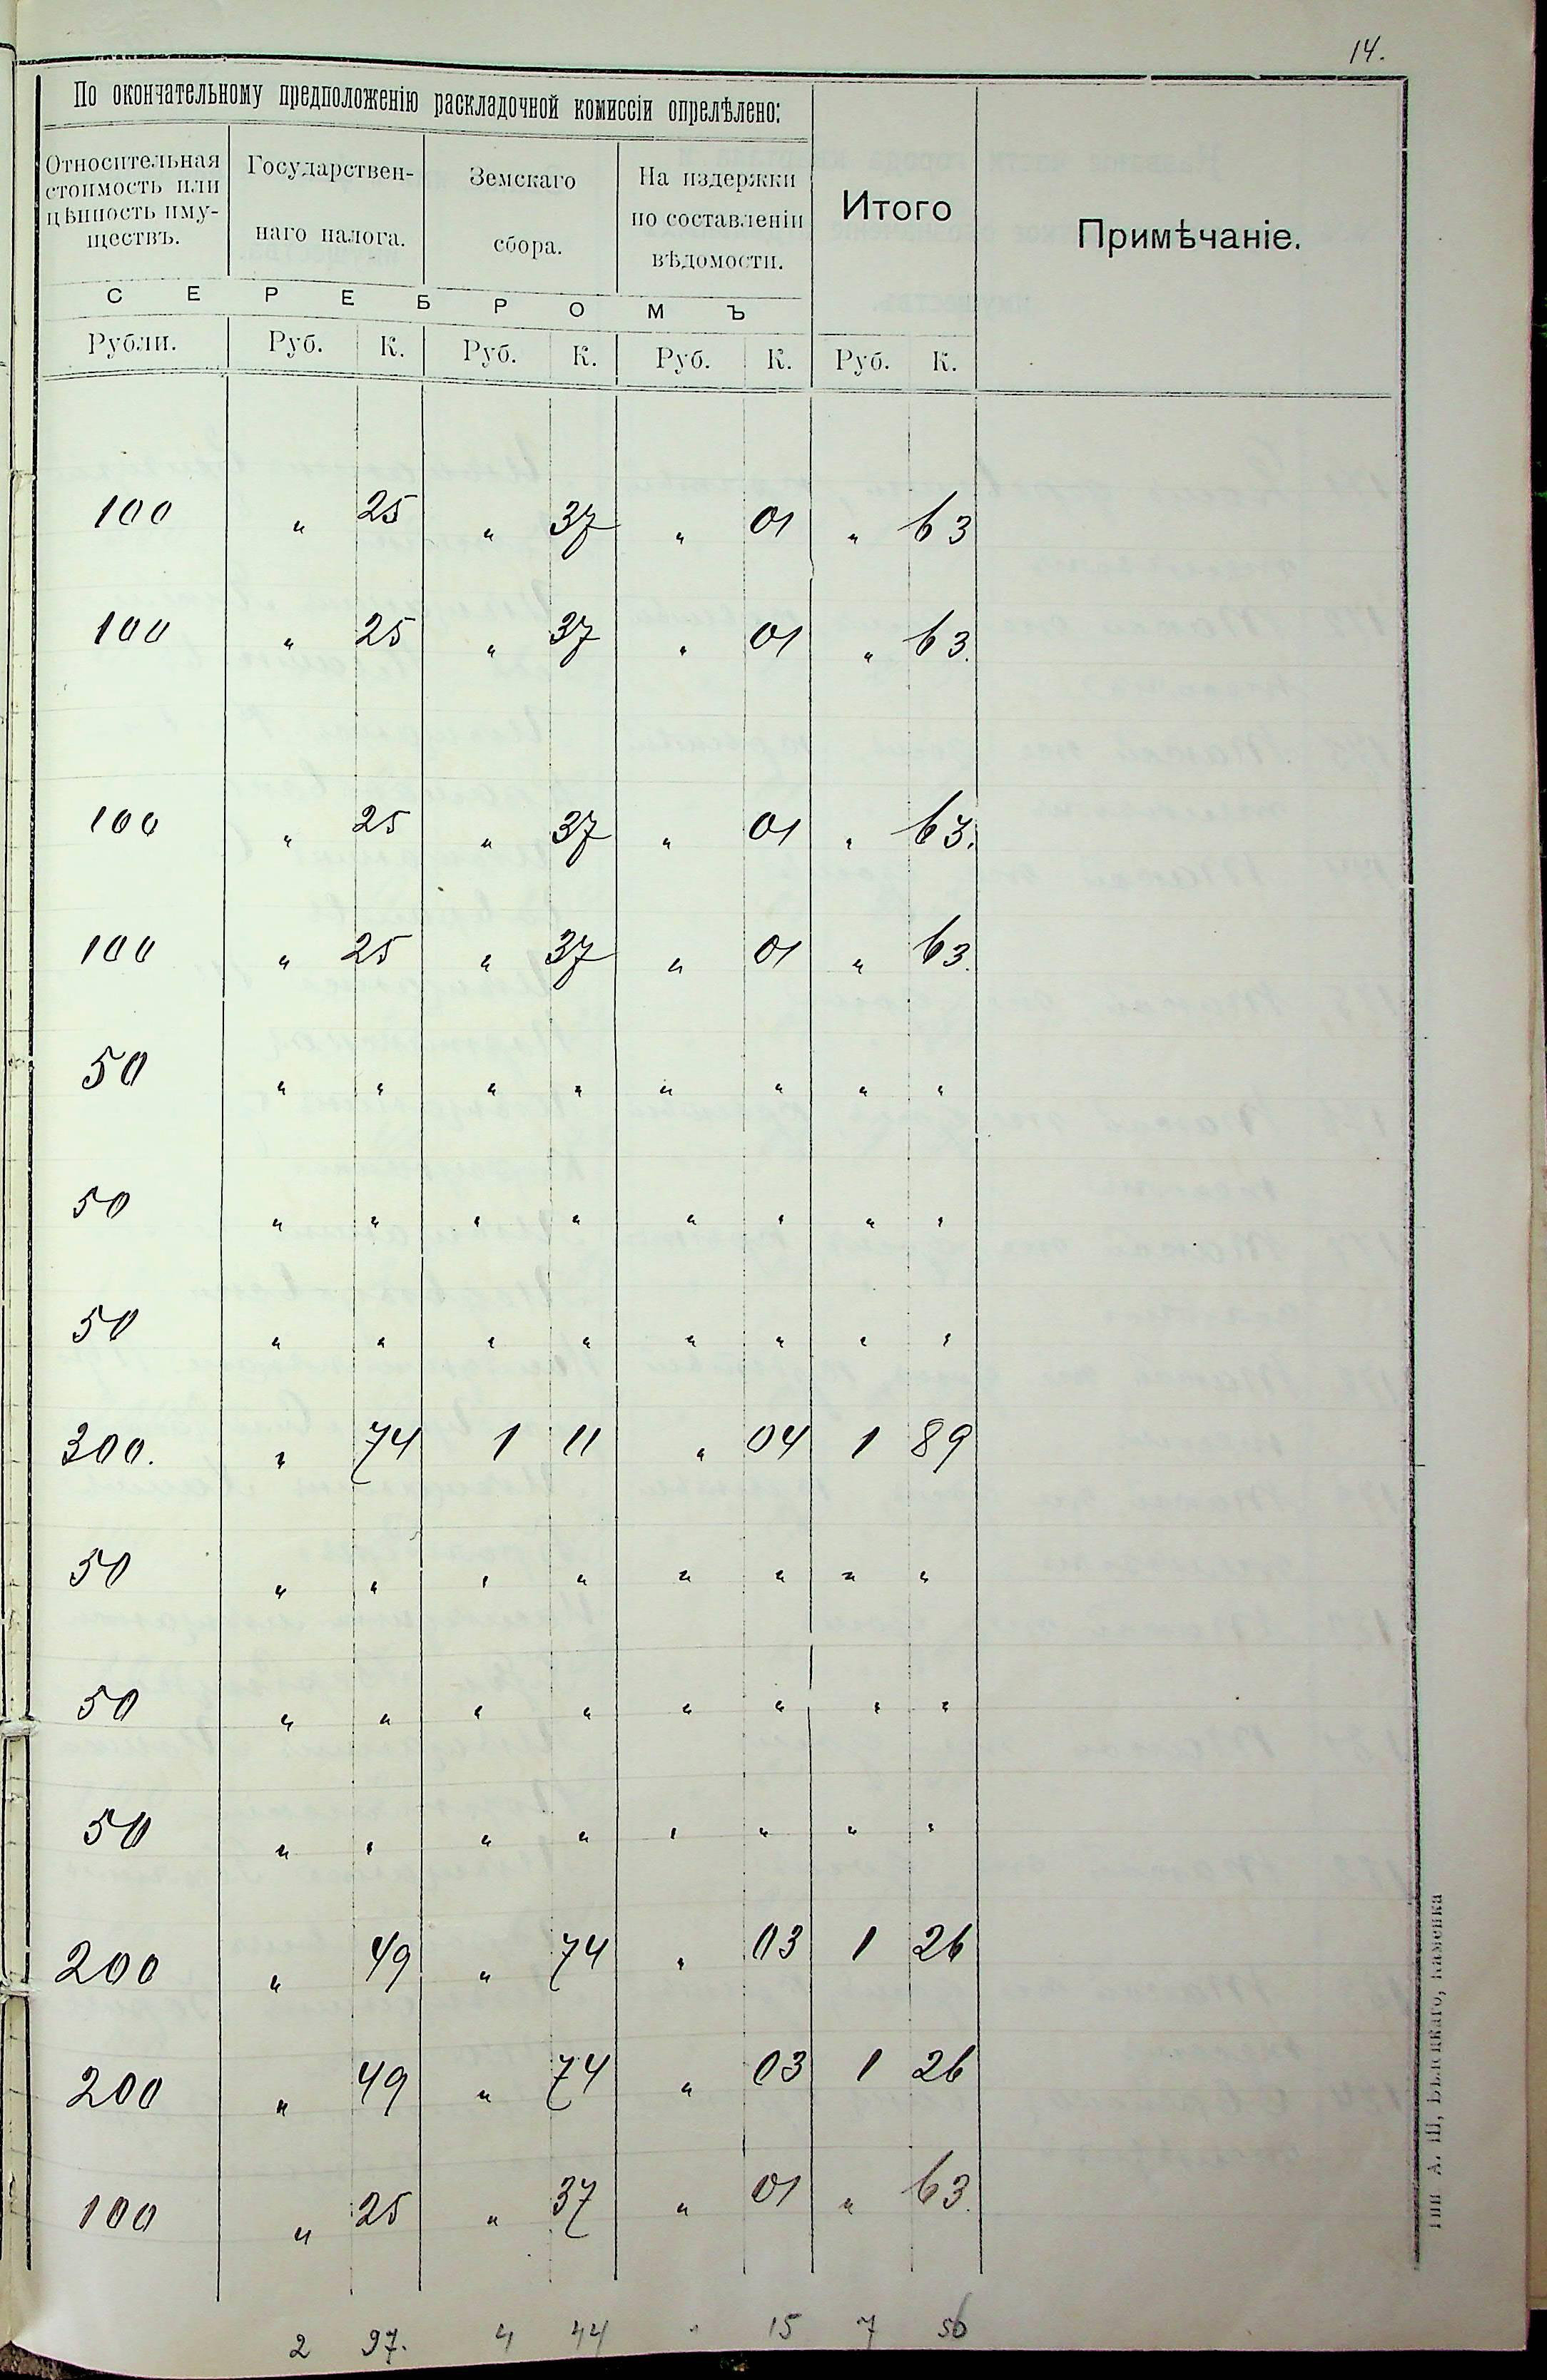 14.
По окончательному предположенію раскладочной комиссіи опрелѣлено:
Относительная стоимость или цѣнность иму-ществъ.
Государствен-наго налога.
Земскаго сбора.
На издержки по составленіи вѣдомости.
Итого
Примѣчаніе.
С Е Р Е Б Р О М Ъ
Рубли. Руб. К. Руб. К. Руб. К. Руб. К.
100 " 25 " 37 " 01 " 63
100 " 25 " 37 " 01 " 63.
100 " 25 " 37 " 01 " 63.
100 " 25 " 37 " 01 " 63.
50 " " " " " " " "
50 " " " " " " " "
50 " " " " " " " "
300. " 74 1 11 " 04 1 89
50 " " " " " " " "
50 " " " " " " " "
50 " " " " " " " "
200 " 49 " 74 " 03 1 26
200 " 49 " 74 " 03 1 26
100 " 25 " 37 " 01 " 63.
2 97. 4 44 " 15 7 56
Тип А. Ш, Бѣлецкаго, Каменка